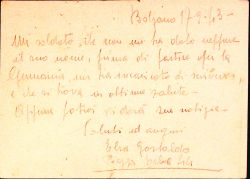 Bolzano 17-9-43-
Un soldato, che non mi ha dato neppure
il suo nome, prima di partire per la
Germania, mi ha incaricato di scrivere
e che si trova in ottima salute-
Appena potrà vi darà sue notizie-
Saluti ed auguri
Elsa